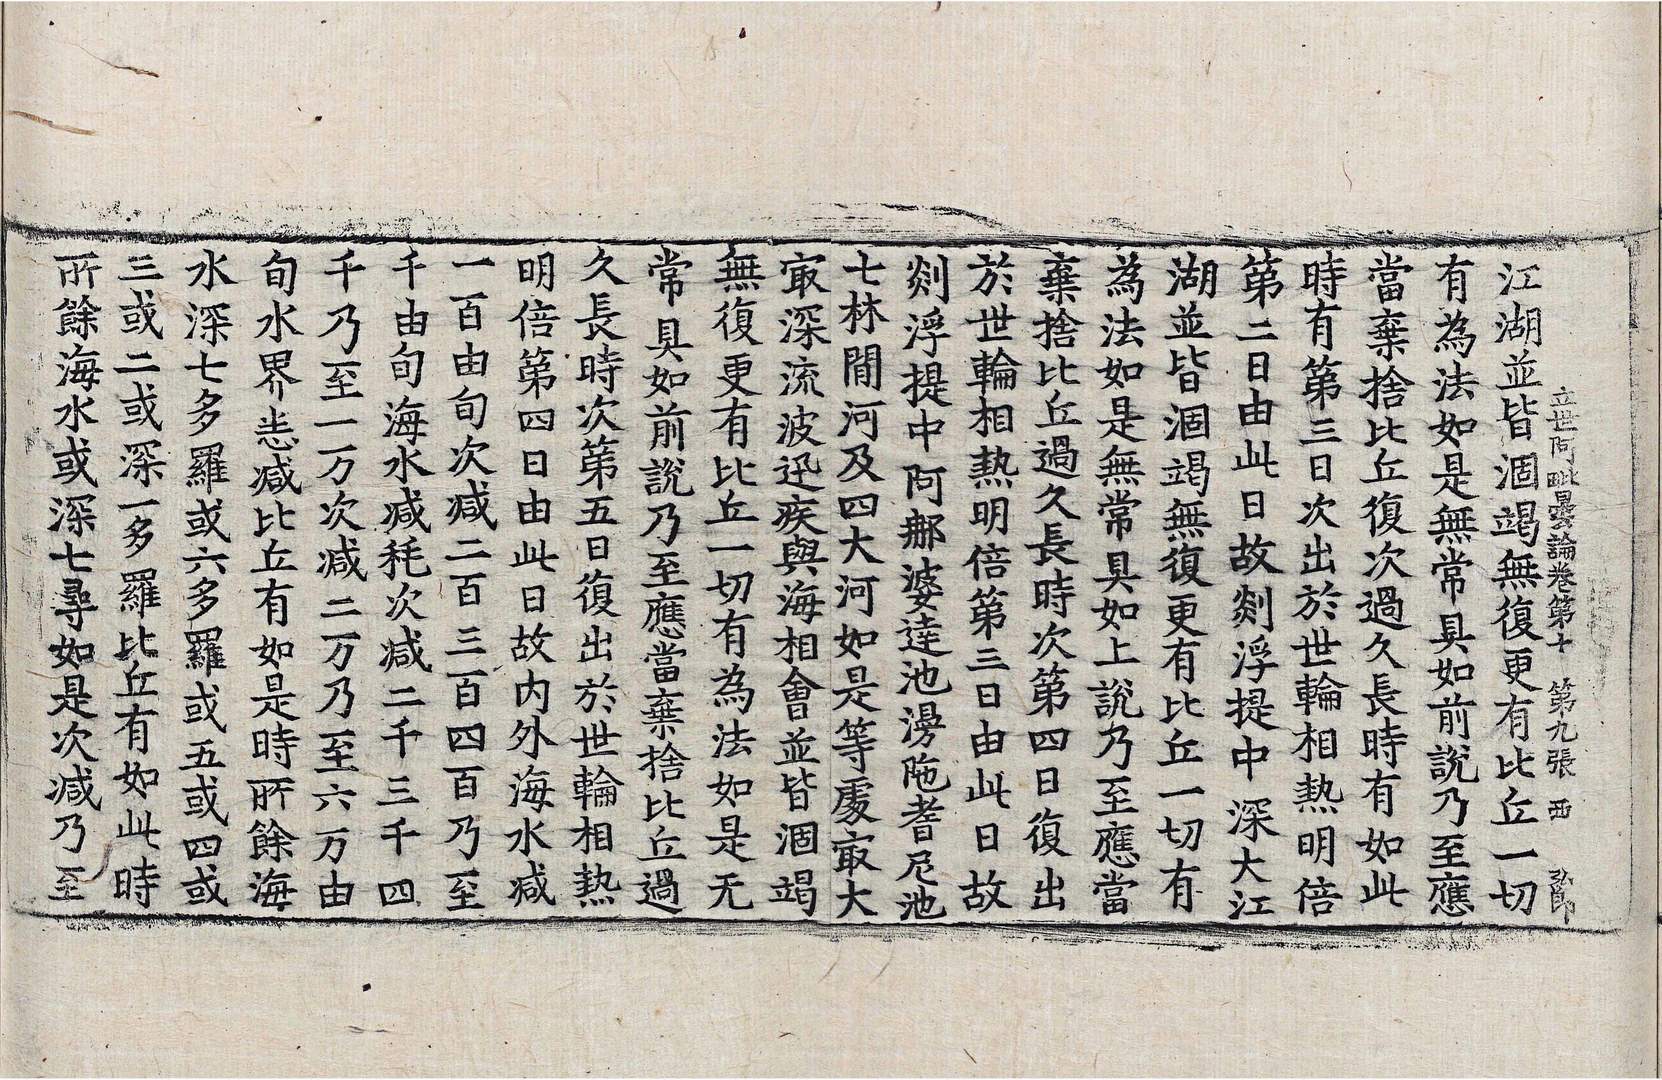 立世阿毗曇論卷第十 第九張 西 弘郎
江湖並皆涸竭無復更有比丘一切
有為法如是無常具如前說乃至應
當棄捨比丘復次過久長時有如此
時有第三日次出於世輪相熱明倍
第二日由此日故剡浮提中深大江
湖並皆涸竭無復更有比丘一切有
為法如是無常具如上說乃至應當
棄捨比丘過久長時次第四日復出
於世輪相熱明倍第三日由此日故
剡浮提中阿那婆達池漫陁耆尼池
七林間河及四大河如是等處㝡大
㝡深流波迅疾與海相會並皆涸竭
無復更有比丘一切有為法如是无
常具如前說乃至應當棄捨比丘過
久長時次第五日復出於世輪相熱
明倍第四日由此日故內外海水減
一百由旬次減二百三百四百乃至
千由旬海水減秏次減二千三千四
千乃至一万次減二万乃至六万由
旬水界恙減比丘有如是時所餘海
水深七多羅或六多羅或五或四或
三或二或深一多羅比丘有如此時
所餘海水或深七尋如是次減乃至